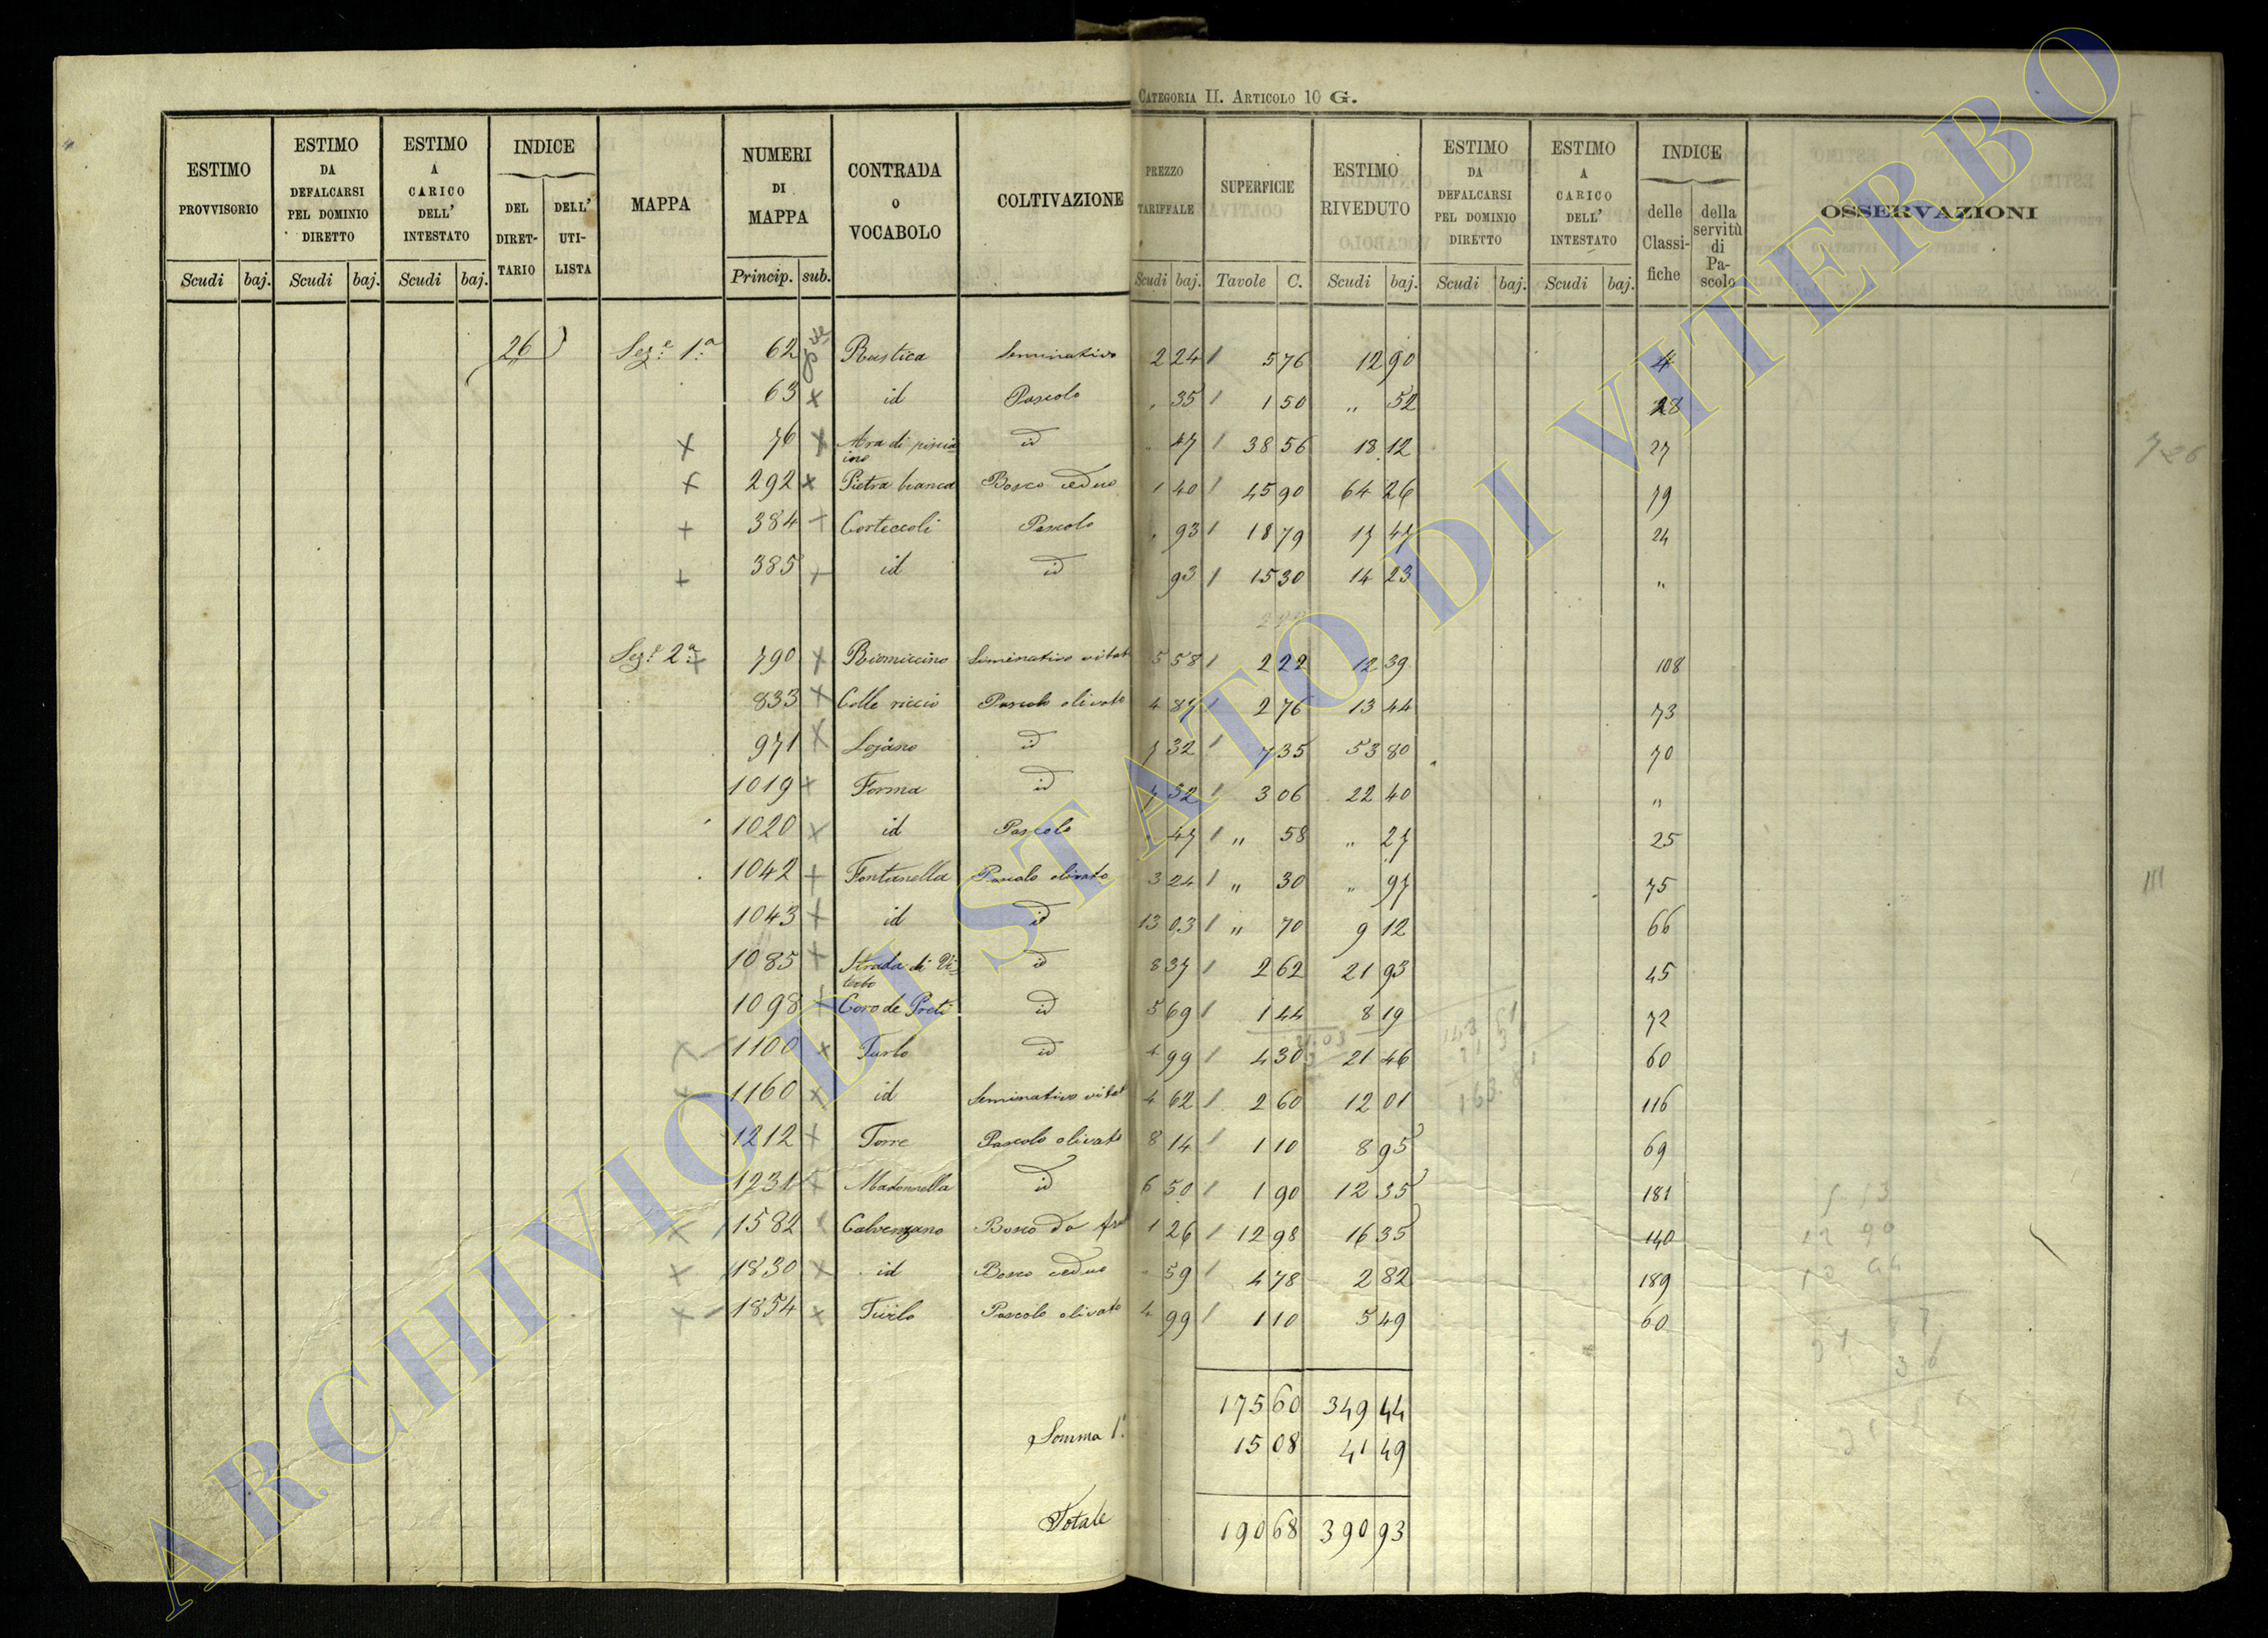 CATEGORIA II. ARTICOLO 10 G.
ESTIMO PROVVISORIO Scudi baj.
ESTIMO DA DEFALCARSI PEL DOMINIO DIRETTO Scudi baj.
ESTIMO A CARICO DELL' INTESTATO Scudi baj.
INDICE DEL DIRETTARIO DELL' UTILISTA
MAPPA
NUMERI DI MAPPA Princip. sub.
CONTRADA O VOCABOLO
COLTIVAZIONE
PREZZO TARIFFALE Scudi baj.
SUPERFICIE Tavole C.
ESTIMO RIVEDUTO Scudi baj.
ESTIMO DA DEFALCARSI PEL DOMINIO DIRETTO Scudi baj.
ESTIMO A CARICO DELL' INTESTATO Scudi baj.
INDICE delle Classifiche della servitù di Pascolo
OSSERVAZIONI
26 Sez.e 1.a 62 Rustica Seminativo 2 24 5 76 12 90 4
63 x id Pascolo 35 1 50 " 52 28
x 76 x Ara di id 47 38 56 18 12 27
x 292 x Pietra bianca Bosco ceduo 1 40 45 90 64 26 79
+ 384 + Corteccoli Pascolo 93 18 79 17 47 24
+ 385 + id id 93 15 30 14 23 "
Sez.e 2.a x 790 x Riomiccino Seminativo vitat 5 58 2 22 12 39 108
833 x Colle riccio Pascolo olivato 4 87 2 76 13 44 73
971 x Lojano id 7 32 7 35 53 80 70
1019 x Forma id 7 32 3 06 22 40 "
1020 x id Pascolo 47 " 58 " 27 25
1042 + Fontanella Pascolo olivato 3 24 " 30 " 97 75
1043 + id id 13 03 " 70 9 12 66
1085 + Strada di Vi-
terbo id 8 37 2 62 21 93 45
1098 + Coro de Preti id 5 69 1 44 8 19 72
x 1100 x Turlo id 4 99 4 30 21 46 60
x 1160 x id Seminativo vitat 4 62 2 60 12 01 116
1212 + Torre Pascolo olivato 8 14 1 10 8 95 69
1231 x Madonnella id 6 50 1 90 12 35 181
x 1582 Calvenzano Bosco da 1 26 12 98 16 35 140
x 1830 x id Bosco ceduo 59 4 78 2 82 189
x 1854 x Turlo Pascolo olivato 4 99 1 10 5 49 60
175 60 349 44
Somma 1.a 15 08 41 49
Totale 190 68 390 93
726
ARCHIVIO DI STATO DI VITERBO